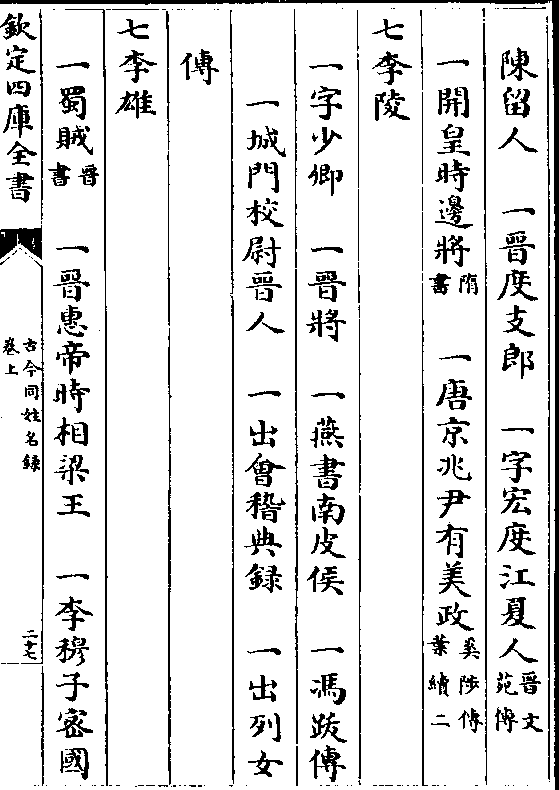 陳留人　一晉度支郎　一字宏度江夏人晉文苑傳
一開皇時邊將隋書　一唐京兆尹有美政奚陟傳葉續二
七李陵
一字少卿　一晉將　一燕書南皮侯　一馮跋傳
一城門校尉晉人　一出會稽典録　一出列女
傳
七李雄
一蜀賊晉書　一晉惠帝時相梁王　一李穆子密國
欽定四庫全書
古今同姓名録
卷上
二十七